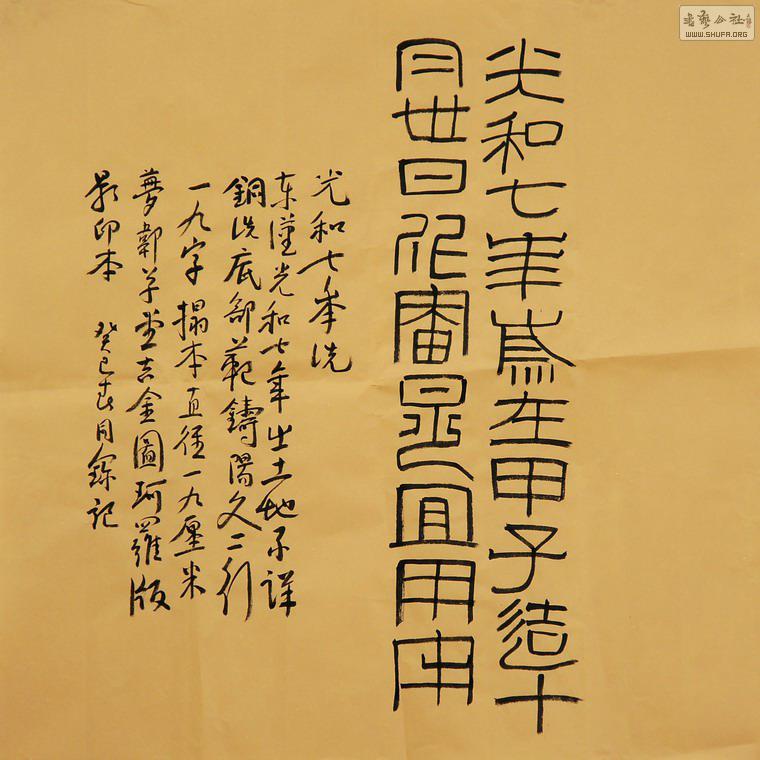 書藝公社
WWW.SHUFA.ORG
光和七年歲在甲子造十
月卅日作宜用
光和七年洗
東漢光和七年出土地不詳
銅洗底部範鑄陽文二行
一九字搨本直徑一九厘米
夢郼草堂吉金圖珂羅版
影印本 癸巳春月記